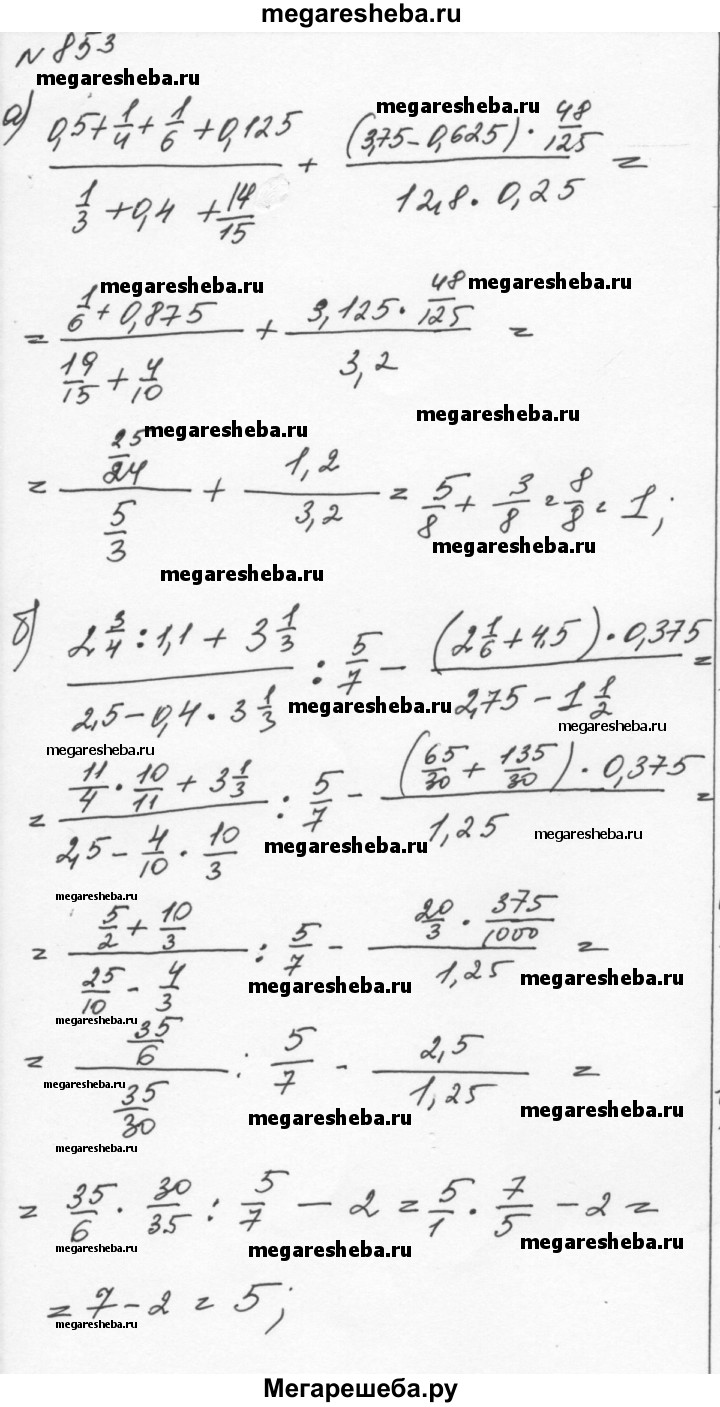 megaresheba.ru
N 853
megaresheba.ru
а) (0,5 + 1/4 + 1/6 + 0,125)/(1/3 + 0,4 + 14/15) + ((3,75 - 0,625) · 48/125)/(12,8 · 0,25) =
megaresheba.ru
megaresheba.ru megaresheba.ru
= (1/6 + 0,875)/(19/15 + 4/10) + (3,125 · 48/125)/(3,2) =
megaresheba.ru
megaresheba.ru
= (25/24)/(5/3) + (1,2)/(3,2) = 5/8 + 3/8 = 8/8 = 1;
megaresheba.ru
megaresheba.ru
б) (2 3/4 : 1,1 + 3 1/3)/(2,5 - 0,4 · 3 1/3) : 5/7 - ((2 1/6 + 4,5) · 0,375)/(2,75 - 1 1/2) =
megaresheba.ru
megaresheba.ru
megaresheba.ru
= (11/4 · 10/11 + 3 1/3)/(2,5 - 4/10 · 10/3) : 5/7 - ((65/30 + 135/30) · 0,375)/(1,25) =
megaresheba.ru
megaresheba.ru
megaresheba.ru
= (5/2 + 10/3)/(25/10 - 4/3) : 5/7 - (20/3 · 375/1000)/(1,25) =
megaresheba.ru
megaresheba.ru
megaresheba.ru
= (35/6)/(35/30) : 5/7 - (2,5)/(1,25) =
megaresheba.ru
megaresheba.ru
megaresheba.ru
megaresheba.ru
= 35/6 · 30/35 : 5/7 - 2 = 5/1 · 7/5 - 2 =
megaresheba.ru
megaresheba.ru
megaresheba.ru
= 7 - 2 = 5;
megaresheba.ru
Мегарешеба.ру